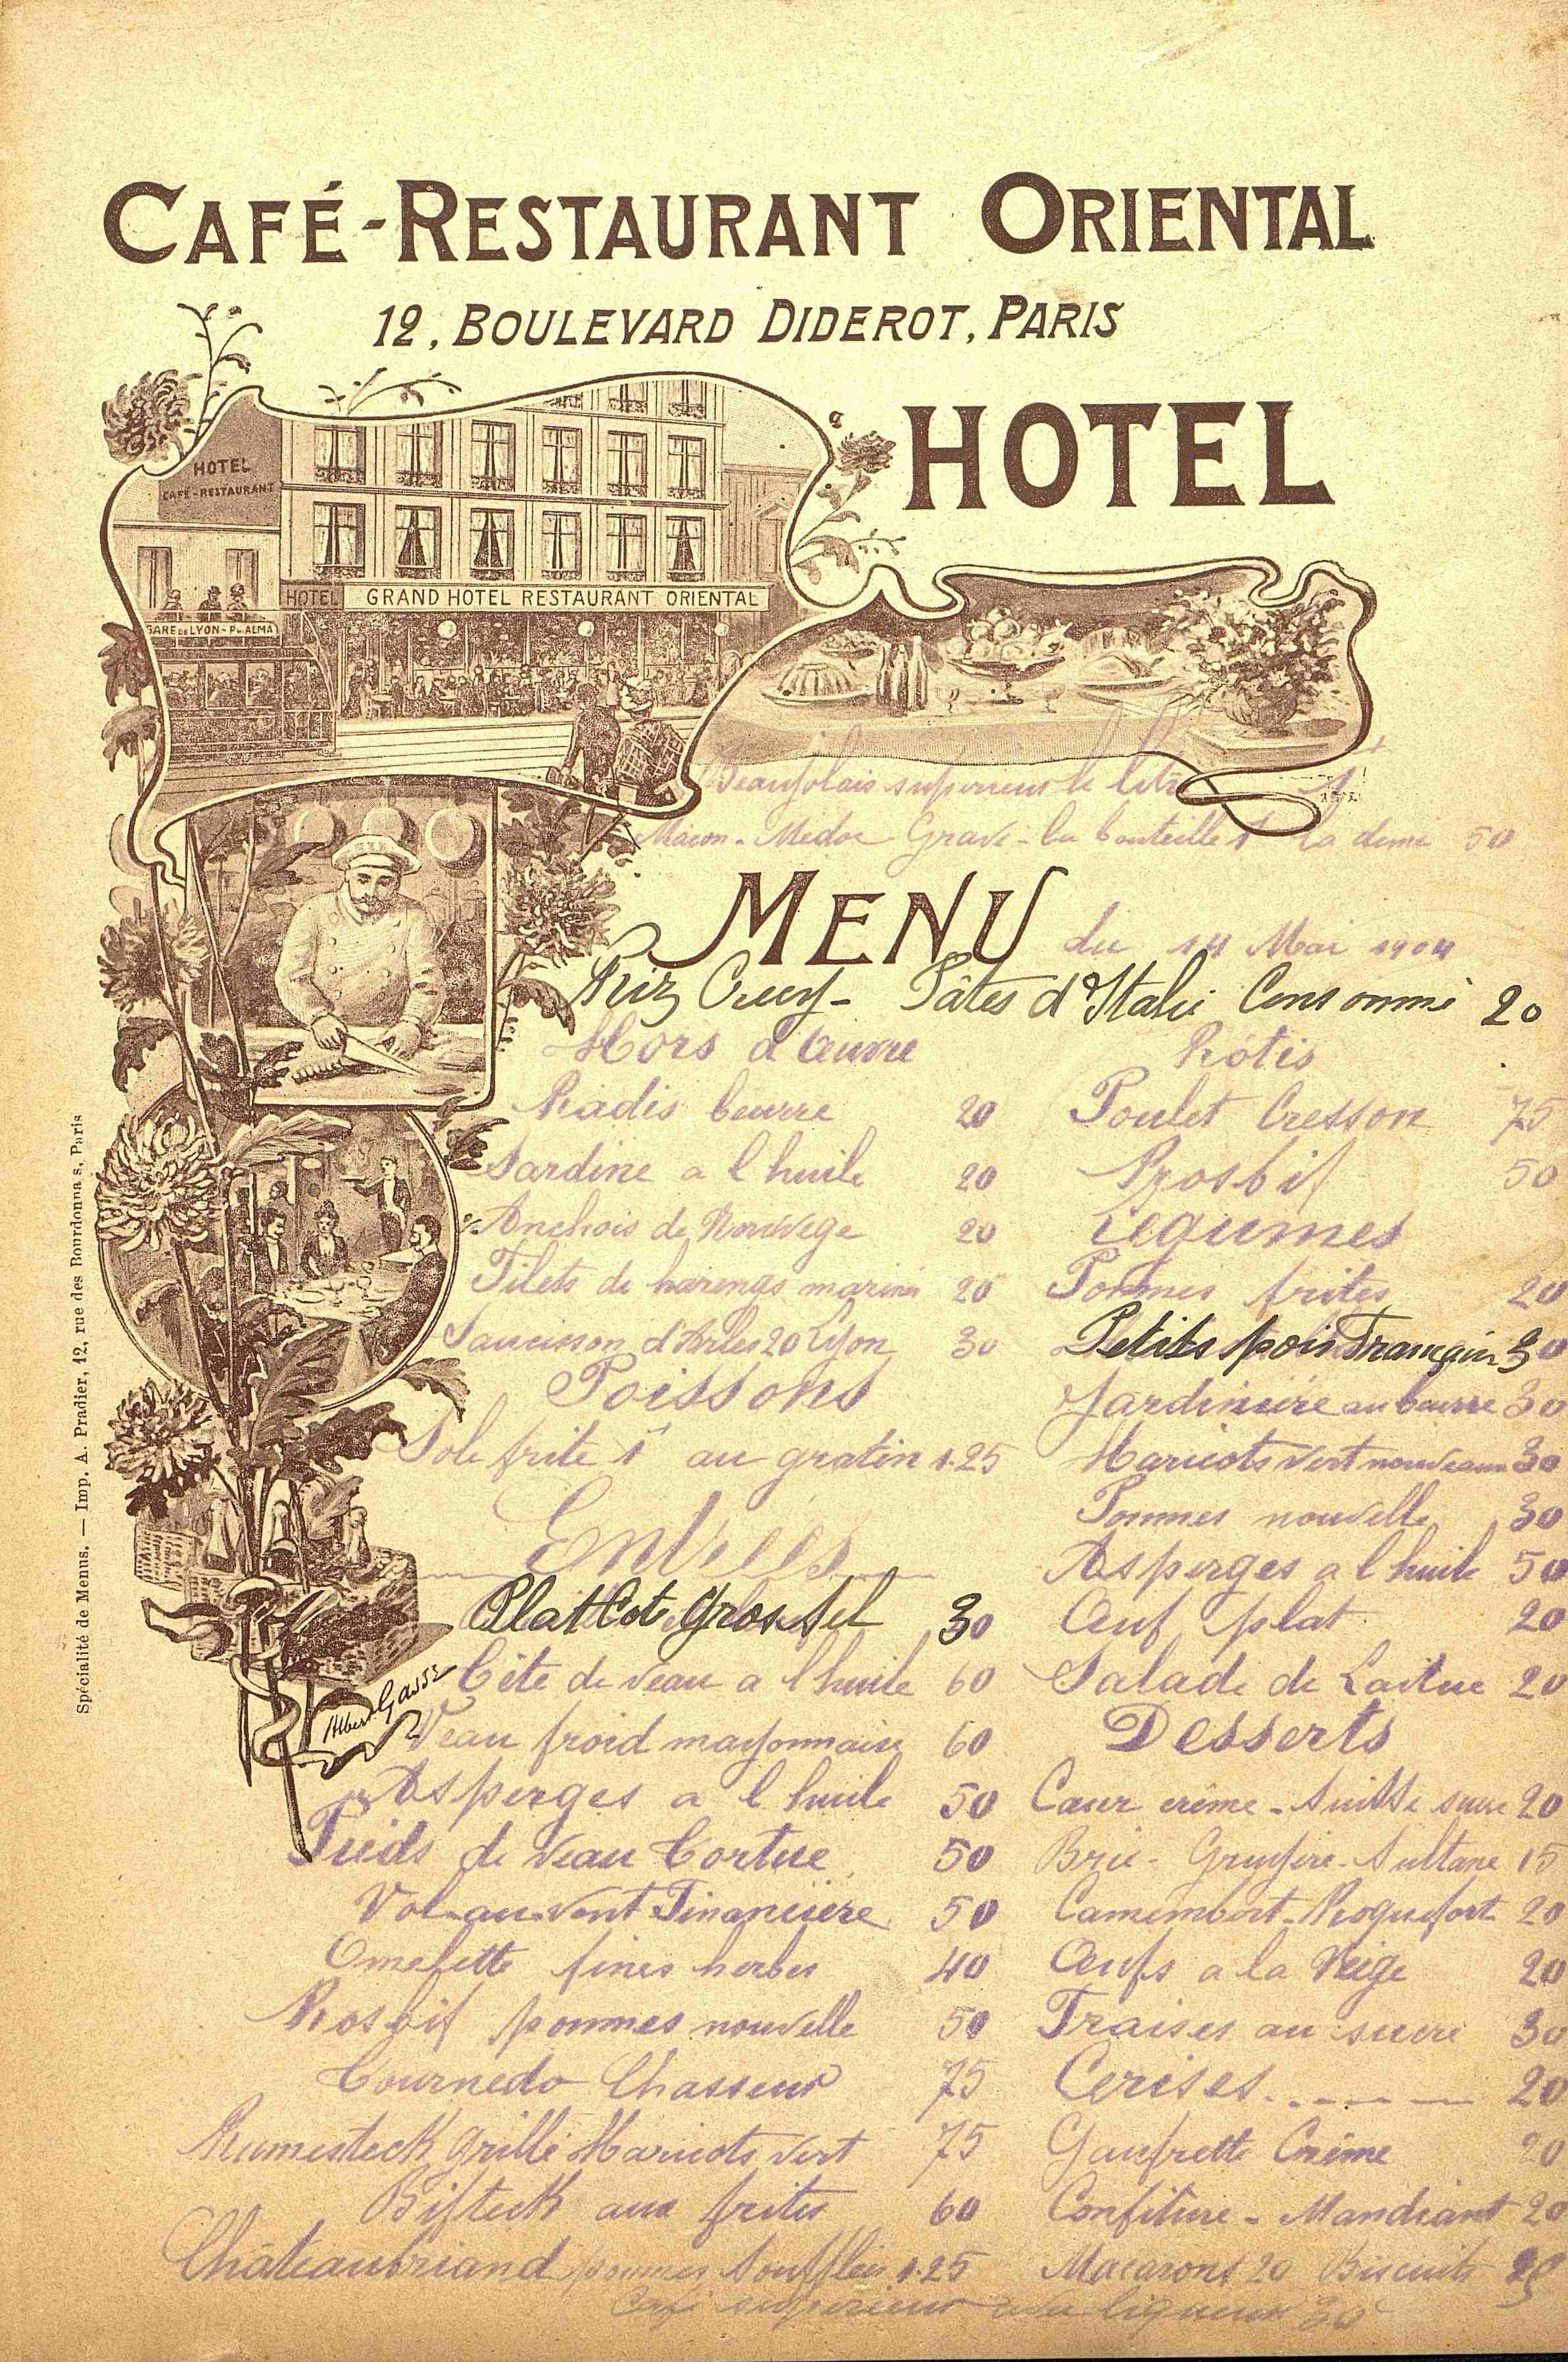 CAFÉ-RESTAURANT ORIENTAL
12, BOULEVARD DIDEROT, PARIS
HOTEL
HOTEL
CAFÉ-RESTAURANT
HOTEL GRAND HOTEL RESTAURANT ORIENTAL
GARE DE LYON - Pt ALMA
Beaujolais superieur le litre 1
Macon - Medoc Grave - la bouteille 1 la demi 50
MENU du 14 Mai 1904
Riz Crecy - Pâtes d'Italie Consommé 20
Hors d'Œuvre
Radis beurre 20
Sardine a l huile 20
Anchois de Norwege 20
Filets de harengs marinés 20
Saucisson d'Arles 20 Lyon 30
Poissons
Sole frite 1 au gratin 1.25
Entrées
Plat Cot Gros Sel 30
Albert Gasse
Tête de veau a l huile 60
Veau froid mayonnaise 60
Asperges a l huile 50
Pieds de veau Tortue 50
Vol-au-vent Financière 50
Omelette fines herbes 40
Rosbif pommes nouvelle 50
Tournedo Chasseur 75
Rumesteck grillé Haricots vert 75
Bifteck aux frites 60
Châteaubriand pommes soufflées 1.25
Rôtis
Poulet Cresson 75
Rosbif 50
Légumes
Pommes frites 20
Petits pois Français 30
Jardinière au beurre 30
Haricots vert nouveaux 30
Pommes nouvelle 30
Asperges a l huile 50
Œuf plat 20
Salade de Laitue 20
Desserts
Cœur crème - Suisse sucre 20
Brie - Gruyère - Sultane 15
Camembert - Roquefort 20
Œufs a la Neige 20
Fraises au sucre 30
Cerises 20
Gaufrette Crème 20
Confiture - Mandiant 20
Macarons 20 Biscuits
Café superieur liqueur 30
Spécialité de Menus. — Imp. A. Pradier, 12, rue des Bourdonna s, Paris